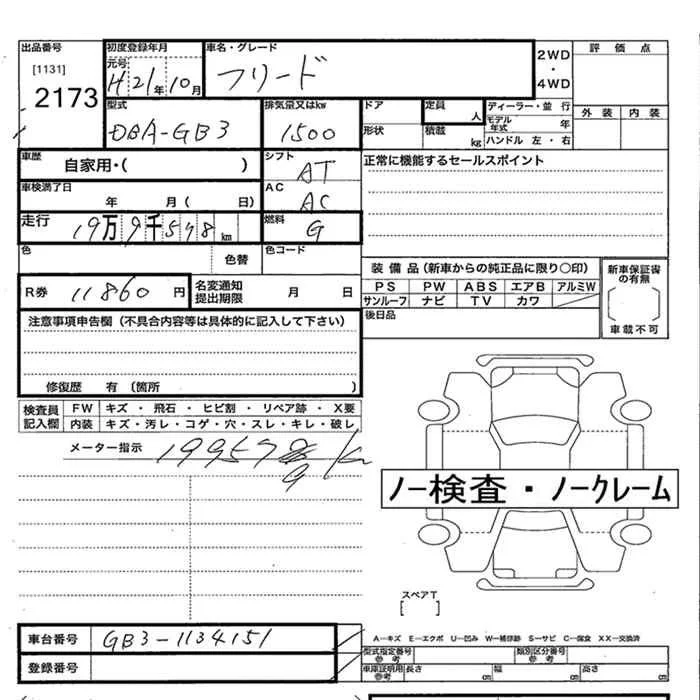 出品番号
[1131]
2173
初度登録年月
元号
H21年10月
車名・グレード
フリード
2WD
・
4WD
評価点
外装 内装
型式
DBA-GB3
排気量又はkw
1500
ドア
形状
定員
人
積載
kg
ディーラー・並行
モデル年式 年
ハンドル 左・右
車歴
自家用・( )
シフト
AT
正常に機能するセールスポイント
車検満了日
年 月( 日)
AC
AC
走行
19万9千578km
燃料
G
色
色替
色コード
装備品(新車からの純正品に限り○印)
PS PW ABS エアB アルミW
サンルーフ ナビ TV カワ
後日品
新車保証書の有無
車載不可
R券 11860円
名変通知
提出期限
月 日
注意事項申告欄(不具合内容等は具体的に記入して下さい)
修復歴 有(箇所 )
検査員記入欄
FW キズ・飛石・ヒビ割・リペア跡・X要
内装 キズ・汚レ・コゲ・穴・スレ・キレ・破レ
メーター指示
19957
9 km
ノー検査・ノークレーム
スペアT
[ ]
車台番号 GB3-1134151
登録番号
A―キズ E―エクボ U―凹み W―補修跡 S―サビ C―腐食 XX―交換済
型式指定番号
参考
類別区分番号
参考
車庫証明用
参考
長さ cm 幅 cm 高さ cm